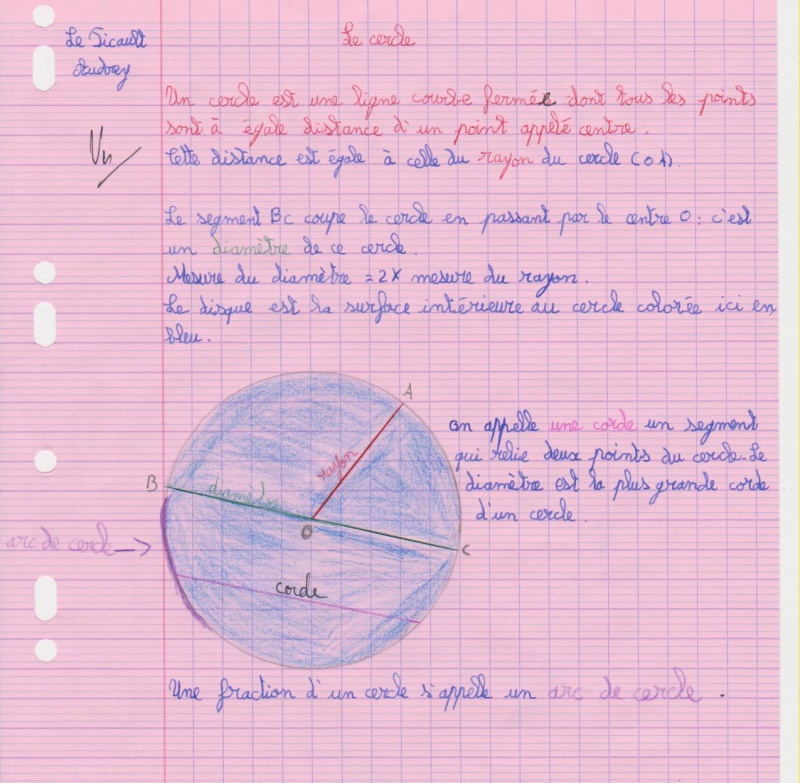 Le Sicault
Audrey
Le cercle
Vu
Un cercle est une ligne courbe fermée dont tous les points
sont à égale distance d'un point appelé centre.
Cette distance est égale à celle du rayon du cercle (OA).
Le segment BC coupe le cercle en passant par le centre O : c'est
un diamètre de ce cercle.
Mesure du diamètre = 2X mesure du rayon.
Le disque est la surface intérieure au cercle colorée ici en
bleu.
A
on appelle une corde un segment
qui relie deux points du cercle. Le
diamètre est la plus grande corde
d'un cercle.
rayon
B
diamètre
O
C
arc de cercle
corde
Une fraction d'un cercle s'appelle un arc de cercle.